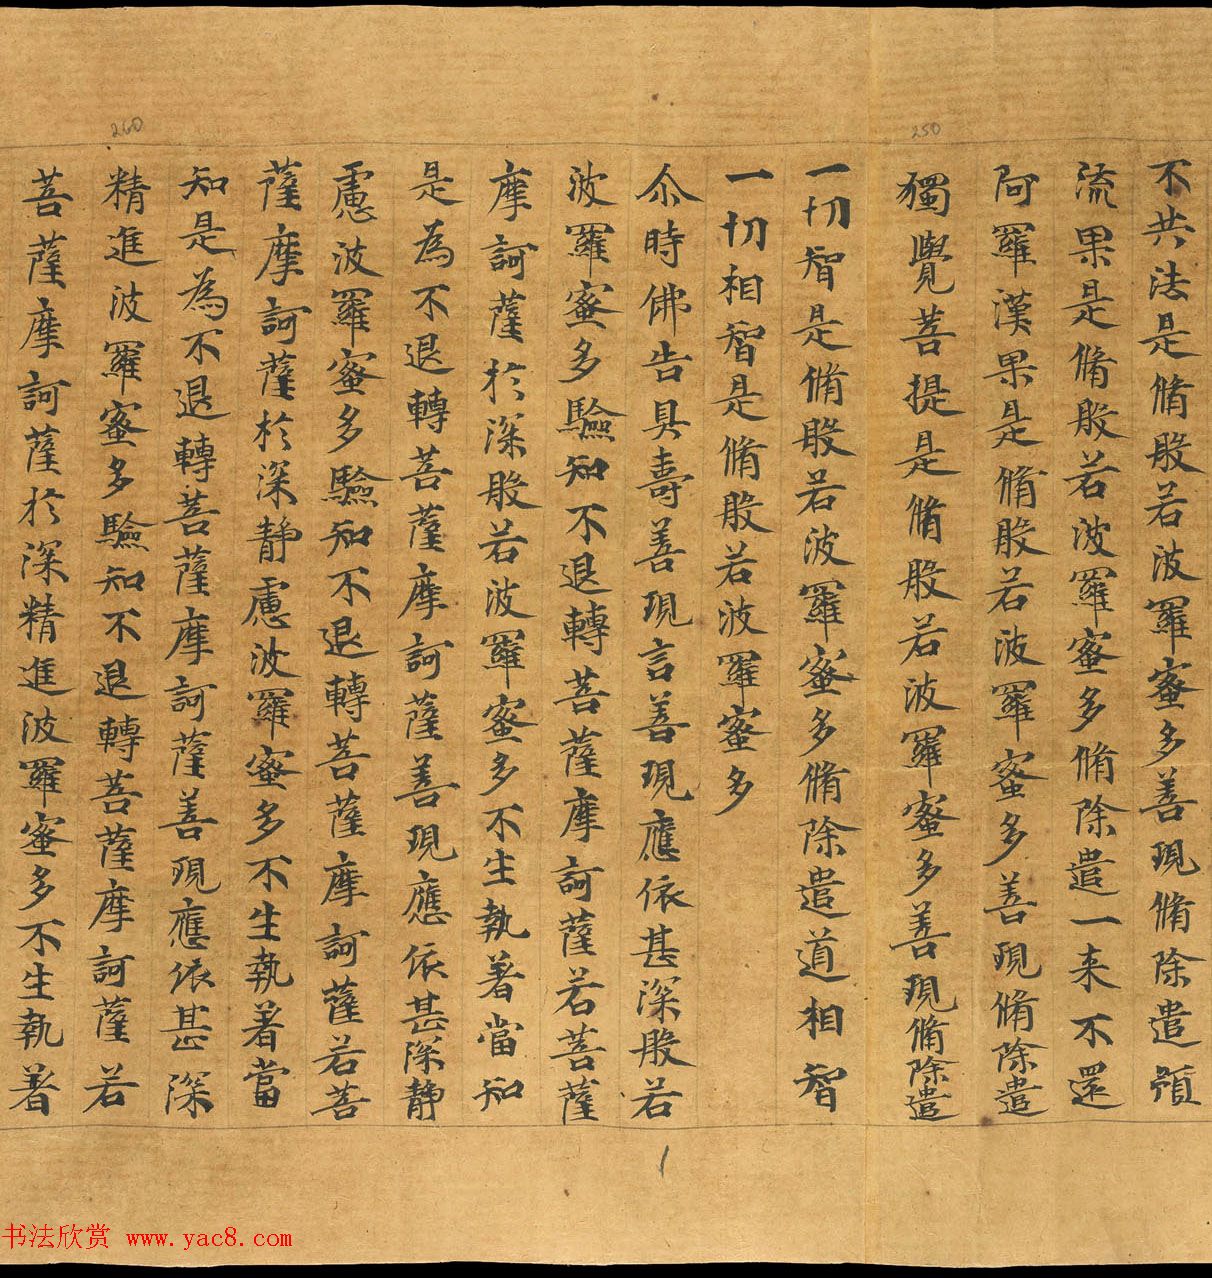 不共法是脩般若波羅蜜多善現脩除遣預
流果是脩般若波羅蜜多脩除遣一来不還
阿羅漢果是脩般若波羅蜜多善現脩除遣
獨覺菩提是脩般若波羅蜜多善現脩除遣
一切智是脩般若波羅蜜多脩除遣道相智
一切相智是脩般若波羅蜜多
尒時佛告具壽善現言善現應依甚深般若
波羅蜜多驗知不退轉菩薩摩訶薩若菩薩
摩訶薩於深般若波羅蜜多不生執著當知
是為不退轉菩薩摩訶薩善現應依甚深静
慮波羅蜜多驗知不退轉菩薩摩訶薩若菩
薩摩訶薩於深静慮波羅蜜多不生執著當
知是為不退轉菩薩摩訶薩善現應依甚深
精進波羅蜜多驗知不退轉菩薩摩訶薩若
菩薩摩訶薩於深精進波羅蜜多不生執著
250
260
书法欣赏 www.yac8.com